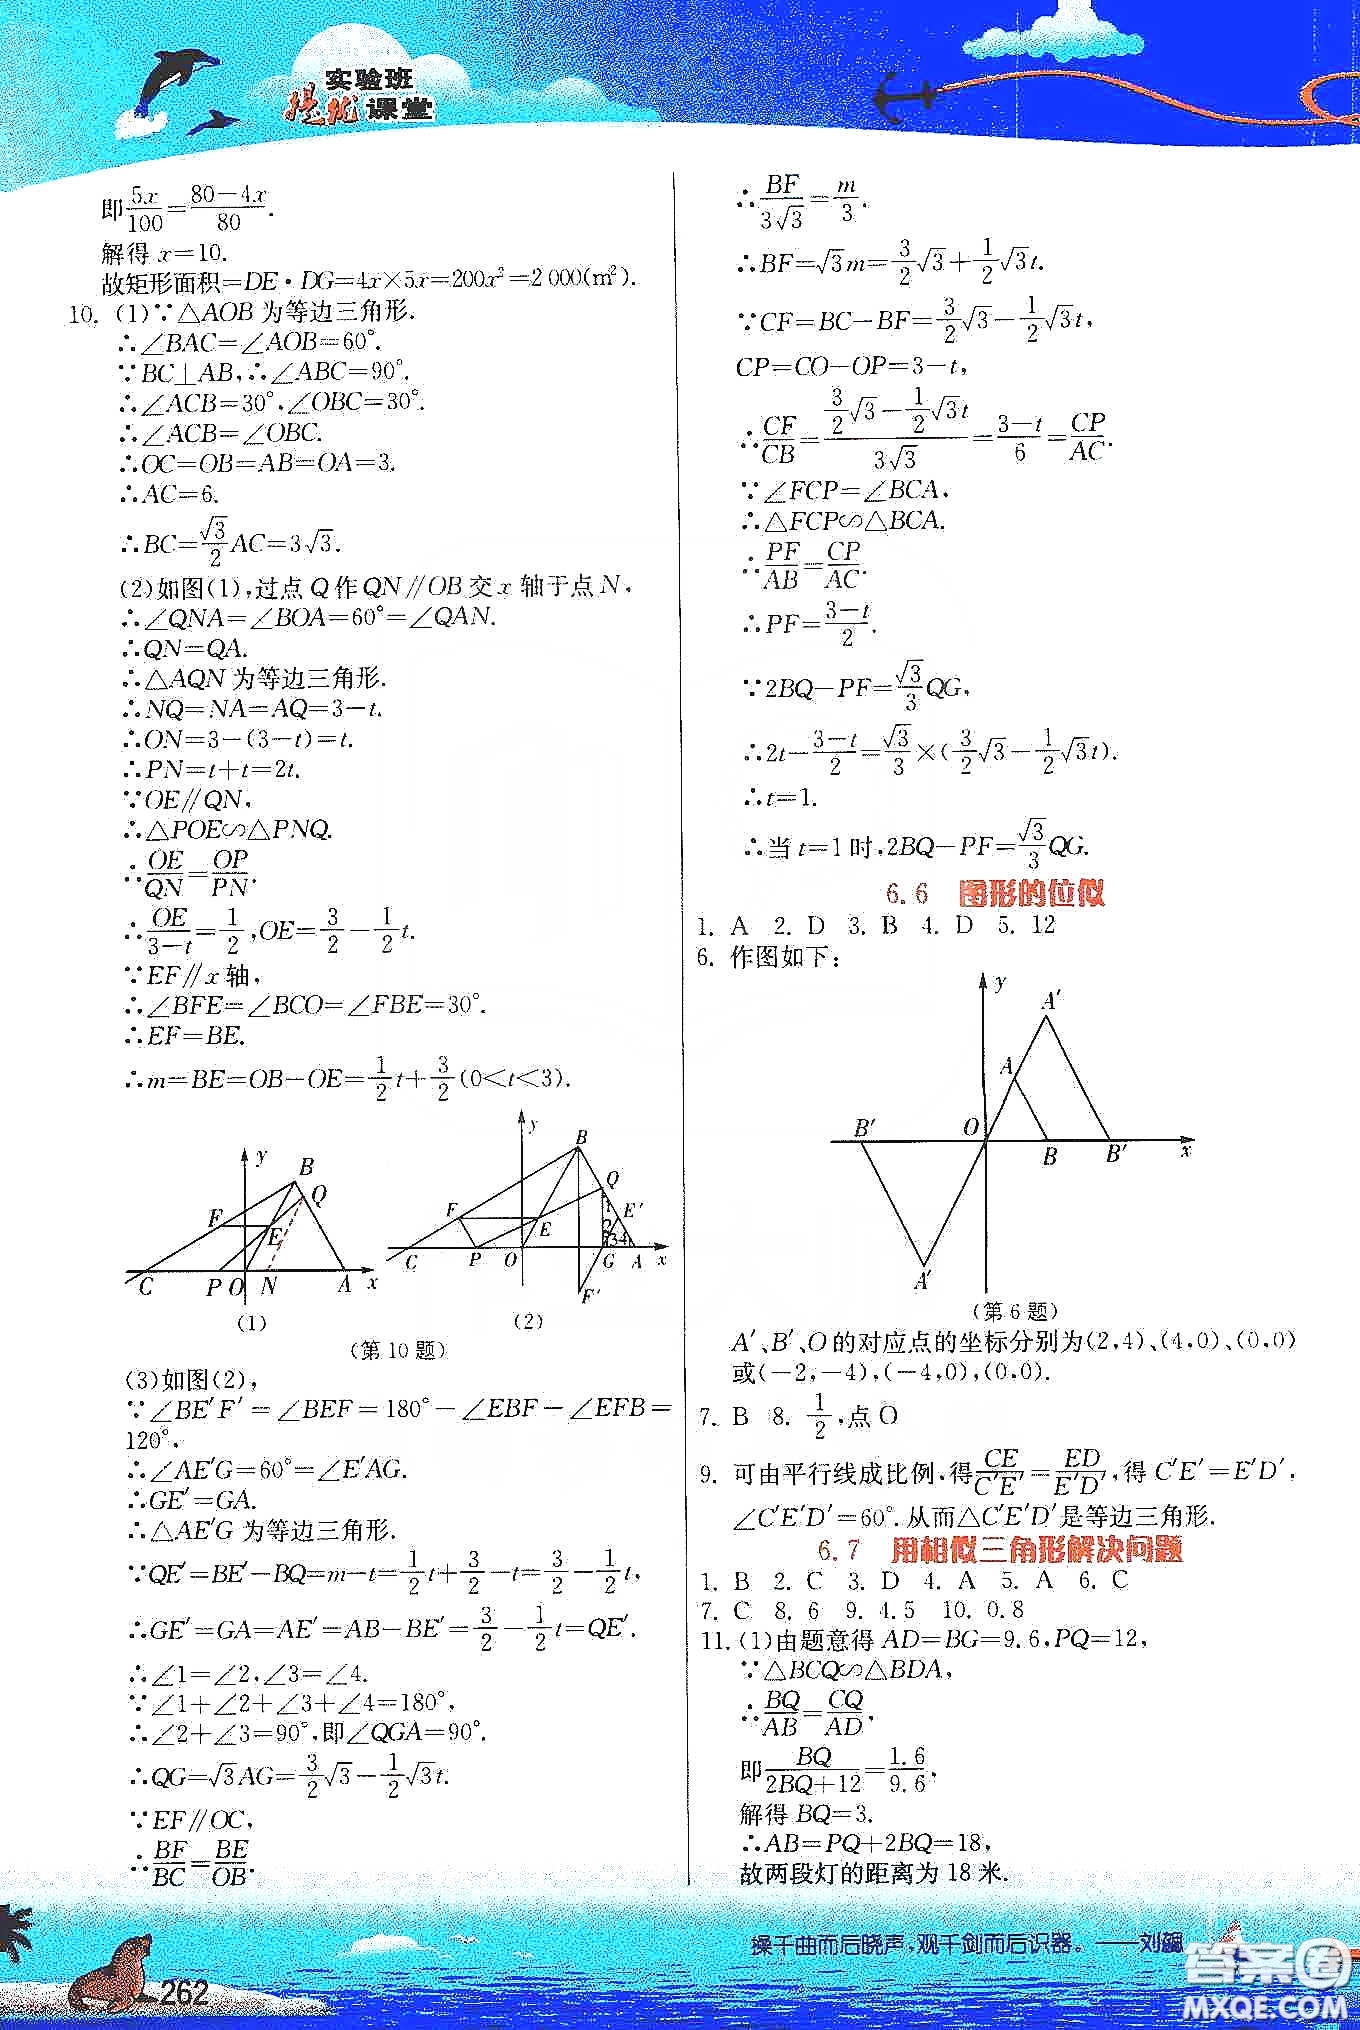 实验班
提优课堂
即5x/100=(80-4x)/80.
解得 x=10.
故矩形面积=DE·DG=4x×5x=200x²=2 000(m²).
10. (1)∵△AOB为等边三角形.
∴∠BAC=∠AOB=60°.
∵BC⊥AB,∴∠ABC=90°.
∴∠ACB=30°,∠OBC=30°.
∴∠ACB=∠OBC.
∴OC=OB=AB=OA=3.
∴AC=6.
∴BC=√3/2 AC=3√3.
(2)如图(1),过点Q作QN∥OB交x轴于点N,
∴∠QNA=∠BOA=60°=∠QAN.
∴QN=QA.
∴△AQN为等边三角形.
∴NQ=NA=AQ=3-t.
∴ON=3-(3-t)=t.
∴PN=t+t=2t.
∵OE∥QN,
∴△POE∽△PNQ.
∴OE/QN=OP/PN.
∴OE/(3-t)=1/2,OE=3/2-1/2t.
∵EF∥x轴,
∴∠BFE=∠BCO=∠FBE=30°.
∴EF=BE.
∴m=BE=OB-OE=1/2t+3/2(0<t<3).
y
B
Q
F
E
C
P
O
N
A
x
(1)
y
B
Q
F
E
E′
1
2
3
4
C
P
O
G
A
x
F′
(2)
(第10题)
(3)如图(2),
∵∠BE′F′=∠BEF=180°-∠EBF-∠EFB=
120°,
∴∠AE′G=60°=∠E′AG.
∴GE′=GA.
∴△AE′G为等边三角形.
∵QE′=BE′-BQ=m-t=1/2t+3/2-t=3/2-1/2t,
∴GE′=GA=AE′=AB-BE′=3/2-1/2t=QE′.
∴∠1=∠2,∠3=∠4.
∵∠1+∠2+∠3+∠4=180°,
∴∠2+∠3=90°,即∠QGA=90°.
∴QG=√3AG=3/2√3-1/2√3t.
∵EF∥OC,
∴BF/BC=BE/OB.
∴BF/3√3=m/3.
∴BF=√3m=3/2√3+1/2√3t.
∵CF=BC-BF=3/2√3-1/2√3t,
CP=CO-OP=3-t,
∴CF/CB=(3/2√3-1/2√3t)/3√3=(3-t)/6=CP/AC.
∵∠FCP=∠BCA,
∴△FCP∽△BCA.
∴PF/AB=CP/AC.
∴PF=(3-t)/2.
∵2BQ-PF=√3/3 QG,
∴2t-(3-t)/2=√3/3×(3/2√3-1/2√3t).
∴t=1.
∴当t=1时,2BQ-PF=√3/3 QG.
6.6 图形的位似
1. A 2. D 3. B 4. D 5. 12
6. 作图如下:
y
A′
A
B′
O
B
B′
x
A′
(第6题)
A′、B′、O的对应点的坐标分别为(2,4)、(4,0)、(0,0)
或(-2,-4),(-4,0),(0,0).
7. B 8. 1/2,点O
9. 可由平行线成比例,得CE/C′E′=ED/E′D′,得C′E′=E′D′,
∠C′E′D′=60°.从而△C′E′D′是等边三角形.
6.7 用相似三角形解决问题
1. B 2. C 3. D 4. A 5. A 6. C
7. C 8. 6 9. 4.5 10. 0.8
11. (1)由题意得AD=BG=9.6,PQ=12,
∵△BCQ∽△BDA,
∴BQ/AB=CQ/AD,
即BQ/(2BQ+12)=1.6/9.6,
解得BQ=3.
∴AB=PQ+2BQ=18,
故两段灯的距离为18米.
操千曲而后晓声,观千剑而后识器。——刘勰
262
答案圈
MXQE.COM